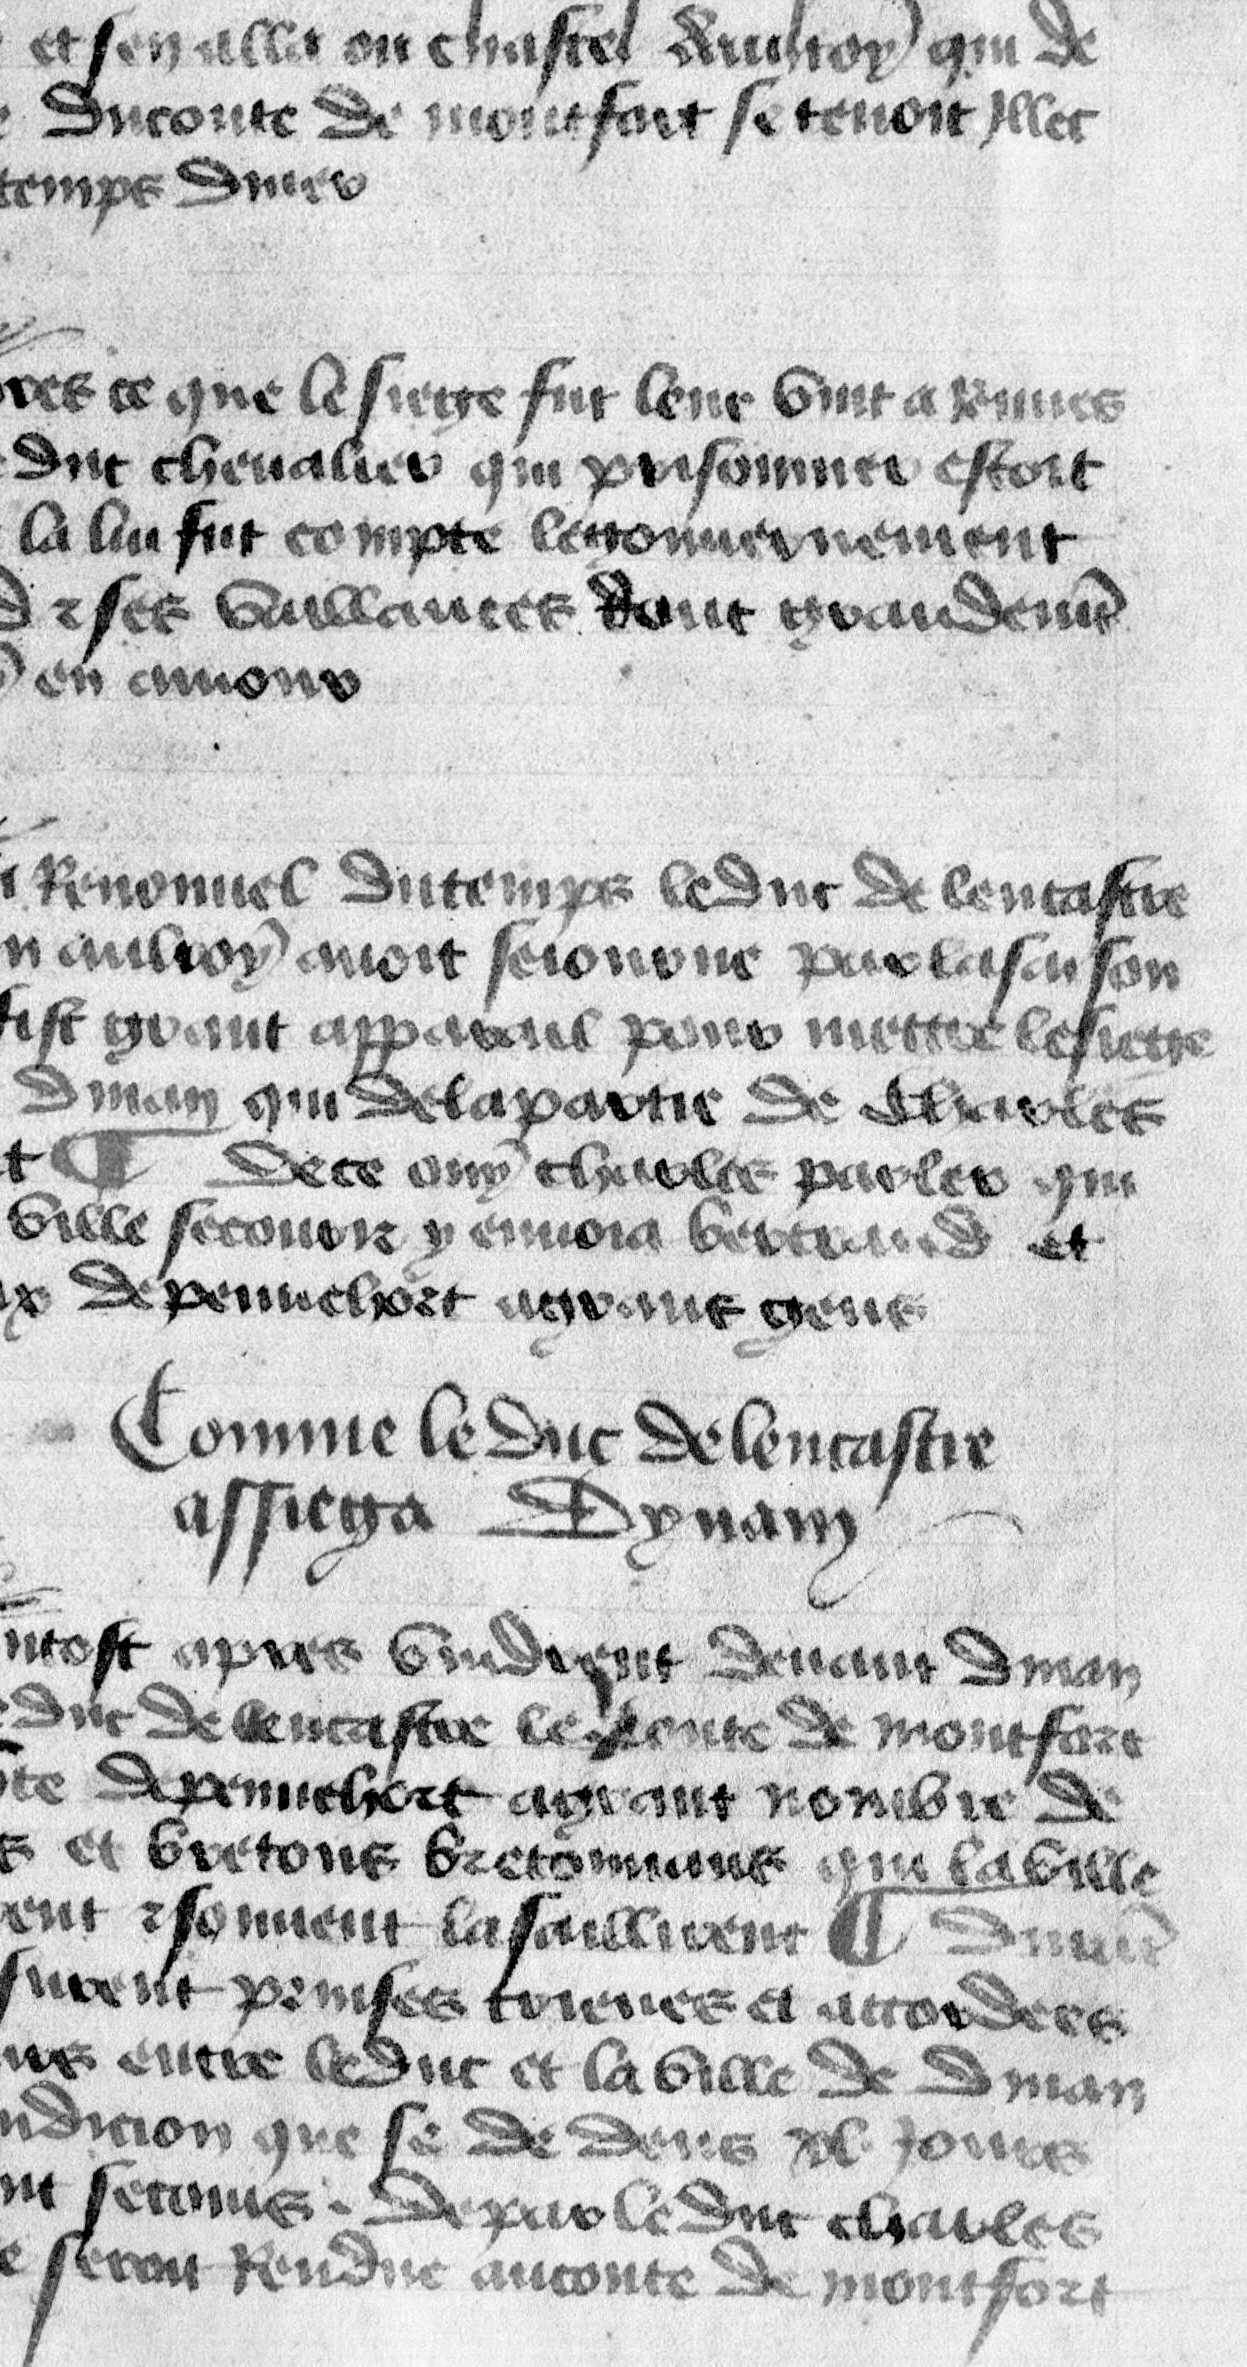 et sen alla ou chastel daulroy qui de
du conte de montfort se tenoit illec
temps dyuer
pres ce que le siege fut leue vint a Rennes
duc cheualier qui prisonnier estoit
la lui fut compte le gouuernement
d et ses vaillances dont grandemt
en amour
Renouuel du temps le duc de lencastre
n aulroy auoit seiourne par la saison
fist grant appareil pour mettre le siege
dinan qui de la partie de Charles
t de ce ouy charles parler qui
ville secourir y enuoia bertrand et
de penuehort a grans gens
Comme le duc de lencastre
assiega Dynam
ntost apres vindrent deuant dinan
duc de lencastre le conte de montfort
te de penuehort a grant nombre de
s et bretons bretonnans qui la ville
rent et souuent lassaillirent
furent prinses trieues et accordees
ns entre le duc et la ville de dinan
ndicion que se de dens xl jours
nt secourus. De par le duc charles
e seroit Rendue au conte de montfort